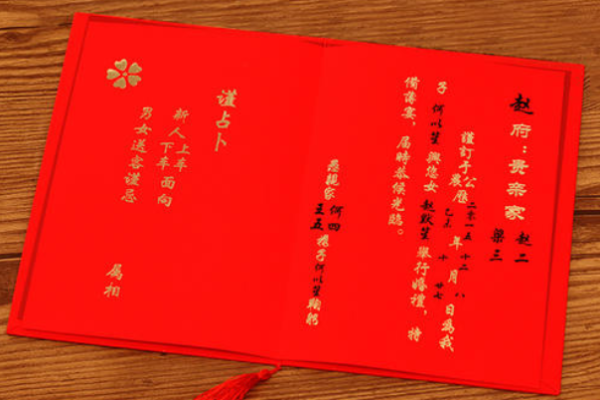 赵府：贵亲家 赵二
梁三
謹訂于公歷二零一五年十二月八日為我
農 乙未 十 廿七
子 何以笙 與您女 赵默笙 舉行婚禮，特
備薄宴，届時恭候光臨。
愚親家 何四
王五 携子何以笙鞠躬
谨占卜
新人上车
下车面向
男女送客谨忌
属相